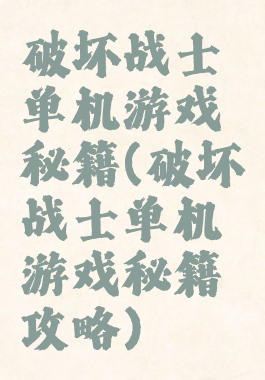 破坏战士
单机游戏
秘籍(破坏
战士单机
游戏秘籍
攻略)